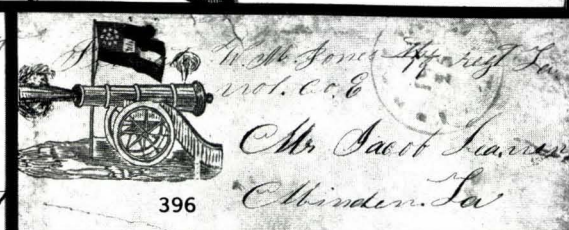 W. M. Jones regt La
vol. Co. E
Mr Jacob
Minden. La
396